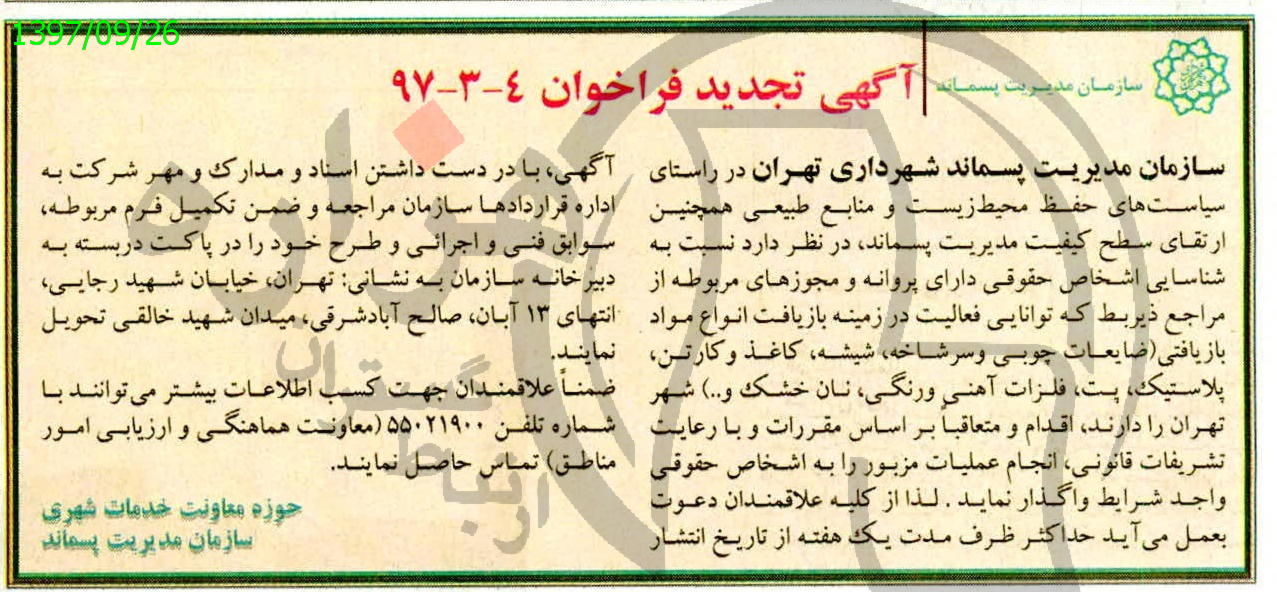 1397/09/26
سازمان مدیریت پسماند
آگهی تجدید فراخوان ٤-٣-٩٧
سازمان مدیریت پسماند شهرداری تهران در راستای
سیاست‌های حفظ محیط‌زیست و منابع طبیعی همچنین
ارتقای سطح کیفیت مدیریت پسماند، در نظر دارد نسبت به
شناسایی اشخاص حقوقی دارای پروانه و مجوزهای مربوطه از
مراجع ذیربط که توانایی فعالیت در زمینه بازیافت انواع مواد
بازیافتی(ضایعات چوبی وسرشاخه، شیشه، کاغذ وکارتن،
پلاستیک، پت، فلزات آهنی ورنگی، نان خشک و..) شهر
تهران را دارند، اقدام و متعاقباً بر اساس مقررات و با رعایت
تشریفات قانونی، انجام عملیات مزبور را به اشخاص حقوقی
واجد شرایط واگذار نماید . لذا از کلیه علاقمندان دعوت
بعمل می‌آید حداکثر ظرف مدت یک هفته از تاریخ انتشار
آگهی، با در دست داشتن اسناد و مدارک و مهر شرکت به
اداره قراردادها سازمان مراجعه و ضمن تکمیل فرم مربوطه،
سوابق فنی و اجرائی و طرح خود را در پاکت دربسته به
دبیرخانه سازمان به نشانی: تهران، خیابان شهید رجایی،
انتهای ۱۳ آبان، صالح آبادشرقی، میدان شهید خالقی تحویل
نمایند.
ضمناً علاقمندان جهت کسب اطلاعات بیشتر می‌توانند با
شماره تلفن ۵۵۰۲۱۹۰۰ (معاونت هماهنگی و ارزیابی امور
مناطق) تماس حاصل نمایند.
حوزه معاونت خدمات شهری
سازمان مدیریت پسماند
هزاره
گستران
ارتباط